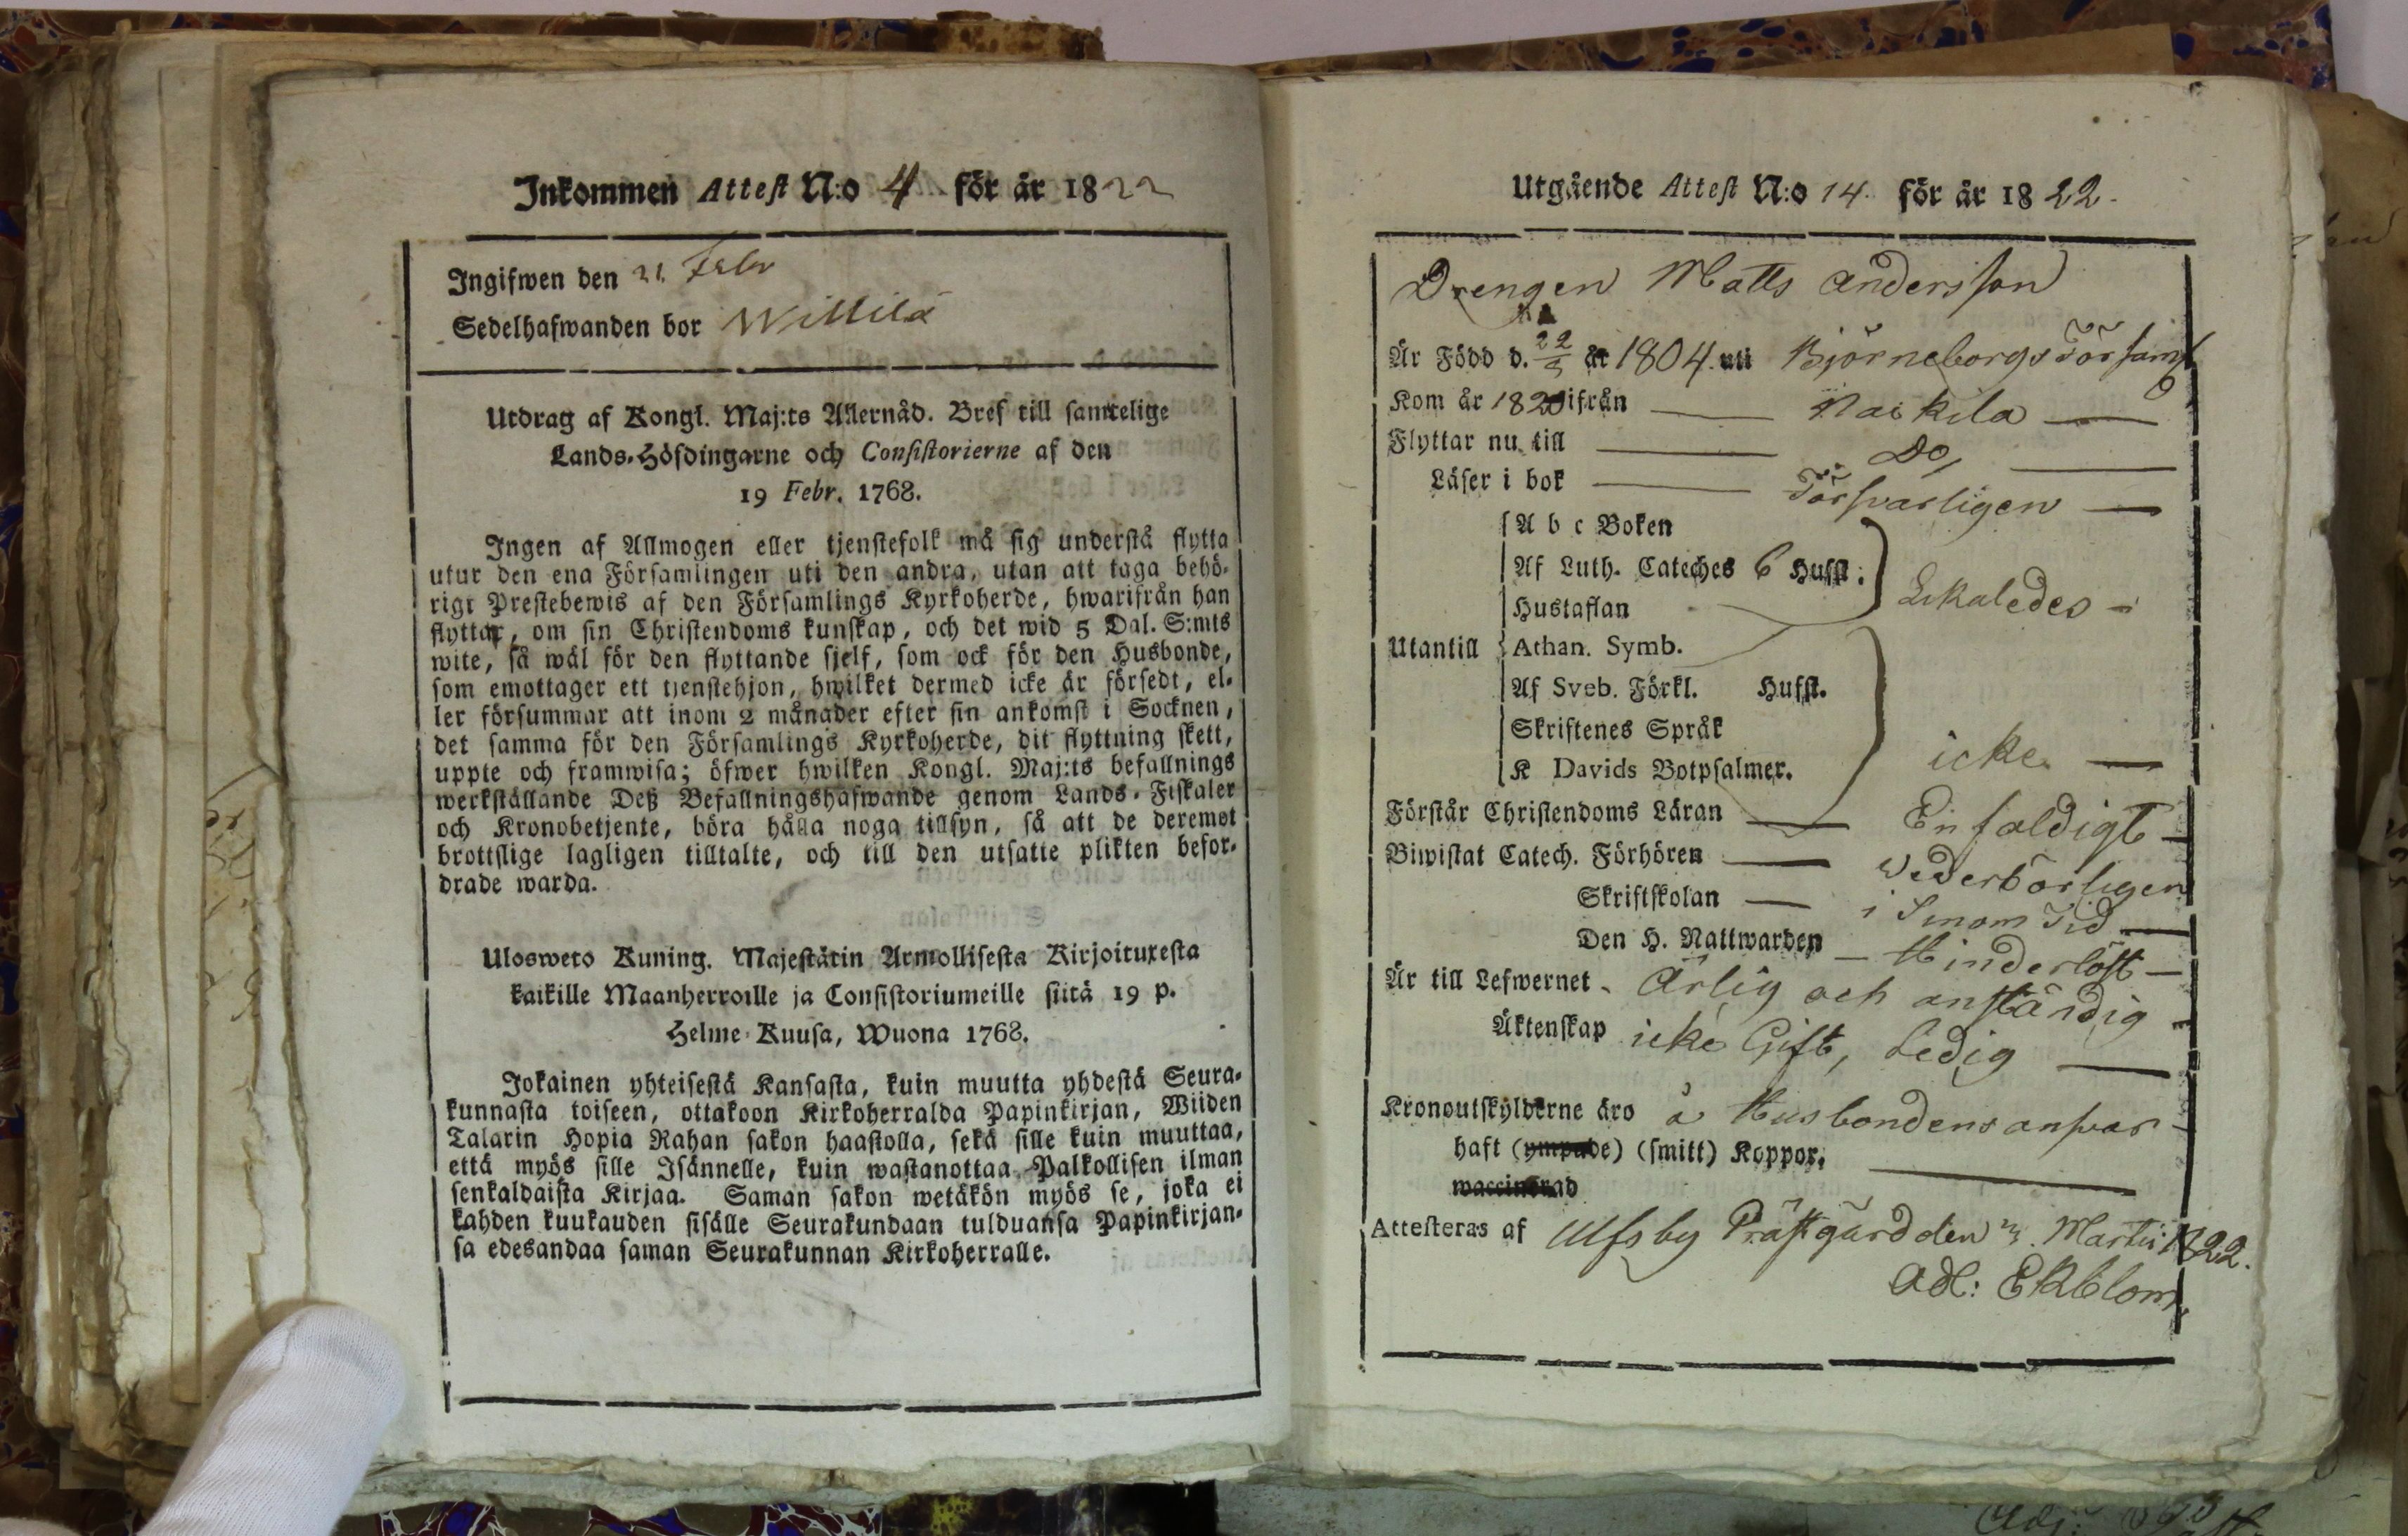 Inkommen Attest N:o 4 för år 1822
Ingifwen den 21. Febr
Sedelhafwanden bor Willilä
Utdrag af Kongl. Maj:ts Allernåd. Bref till samtelige
Lands-Höfdingarne och Consistorierne af den
19 Febr. 1768.
Ingen af Allmogen eller tjenstefolk må sig understå flytta
utur den ena Församlingen uti den andra, utan att taga behö-
rigt Prestebewis af den Församlings Kyrkoherde, hwarifrån han
flyttar, om sin Christendoms kunskap, och det wid 5 Dal. S:mts
wite, så wäl för den flyttande sjelf, som ock för den Husbonde,
som emottager ett tjenstehjon, hwilket dermed icke är försedt, el-
ler försummar att inom 2 månader efter sin ankomst i Socknen,
det samma för den Församlings Kyrkoherde, dit flyttning skett,
uppte och framwisa; öfwer hwilken Kongl. Maj:ts befallnings
werkställande Deß Befallningshafwande genom Lands-Fiskaler
och Kronobetjente, böra hålla noga tillsyn, så att de deremot
brottslige lagligen tilltalte, och till den utsatte plikten befor-
drade warda.
Ulosweto Kuning. Majestätin Armollisesta Kirjoituxesta
kaikille Maanherroille ja Consistoriumeille siitä 19 p.
Helme-Kuusa, Wuona 1768.
Jokainen yhteisestä Kansasta, kuin muutta yhdestä Seura-
kunnasta toiseen, ottakoon Kirkoherralda Papinkirjan, Wiiden
Talarin Hopia Rahan sakon haastolla, sekä sille kuin muuttaa,
että myös sille Isännelle, kuin wastanottaa Palkollisen ilman
senkaldaista Kirjaa. Saman sakon wetäkön myös se, joka ei
kahden kuukauden sisälle Seurakundaan tulduansa Papinkirjan-
sa edesandaa saman Seurakunnan Kirkoherralle.
Utgående Attest N:o 14. för år 1822.
Drengen Matts Andersson
Är Född d. 22/3 år 1804. uti Björneborgs Förs­aml
Kom år 1820 ifrån Nackila
Flyttar nu till Do,
Läser i bok Försvarligen
A b c Boken
Af Luth. Cateches 6 Hufst.
Hustaflan Likaledes
Utantill Athan. Symb.
Af Sveb. Förkl. Hufst.
Skriftenes Språk
K Davids Botpsalmer. icke
Förstår Christendoms Läran Enfaldigt
Biwistat Catech. Förhören wederbörligen
Skriftskolan i Sinom Tid
Den H. Nattwarden Hinderlöst
Är till Lefwernet Ärlig och anständig
Äktenskap icke Gift, Ledig
Kronoutskylderne äro å Husbondens ansvar
haft (ympade) (smitt) Koppor.
waccinerad
Attesteras af Ulfsby Prästgård den 3. Martii 1822.
Adl: Ekblom